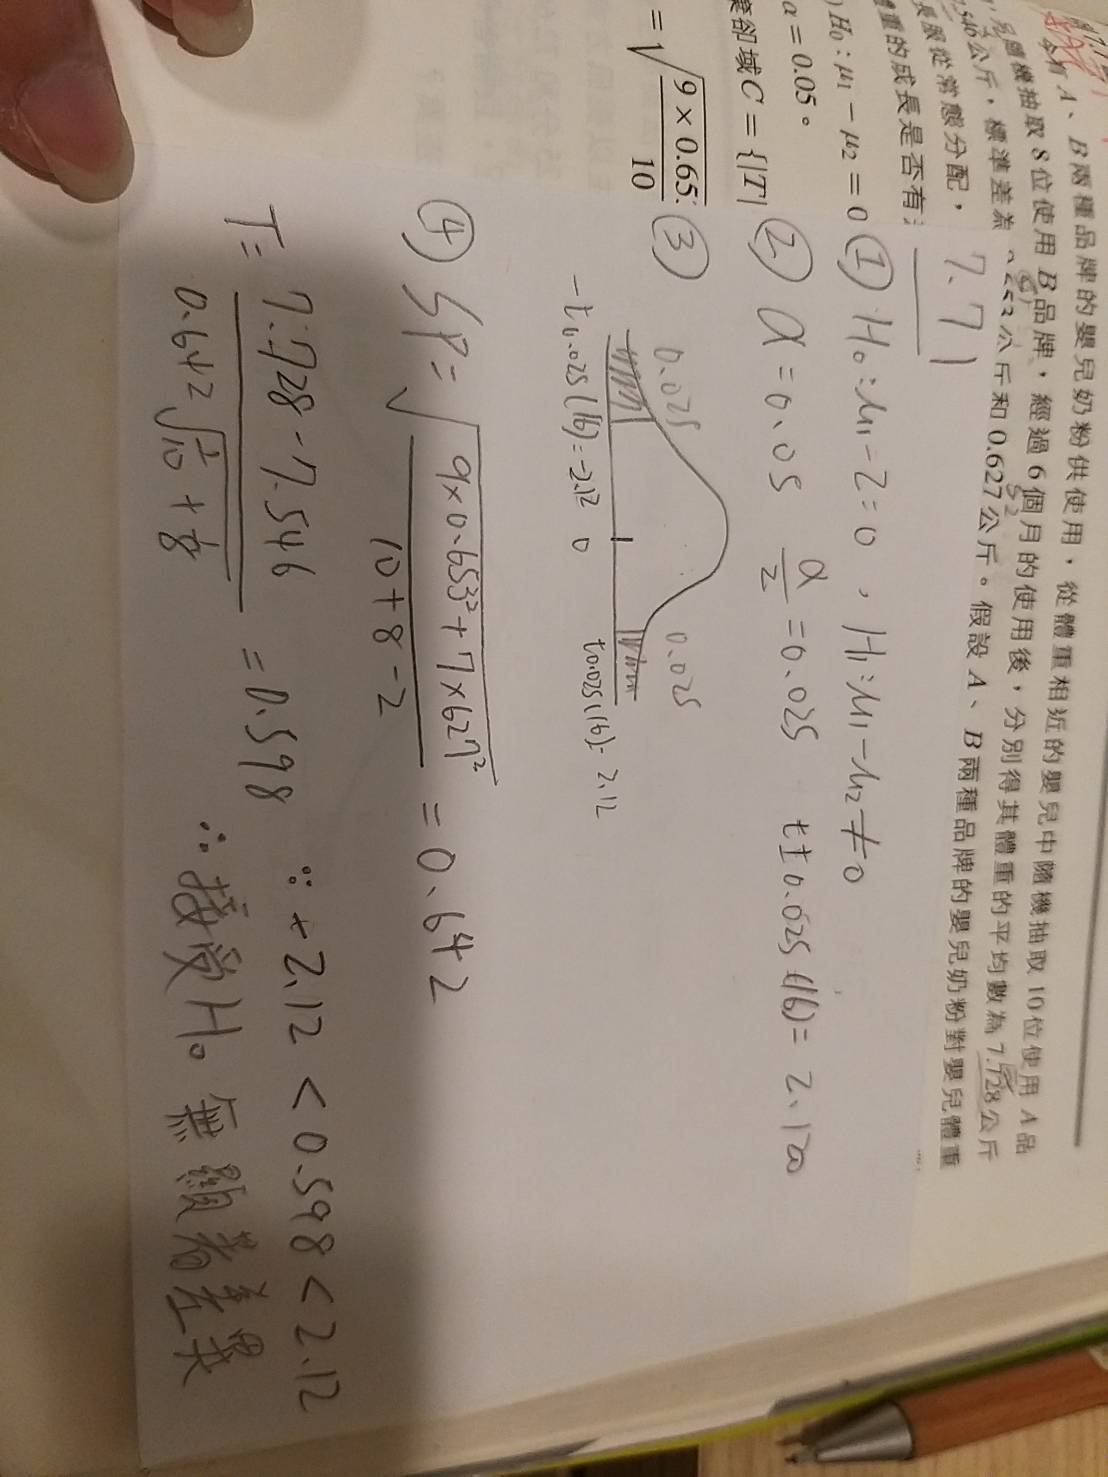 今有A、B兩種品牌的嬰兒奶粉供使用，從體重相近的嬰兒中隨機抽取10位使用A品
另隨機抽取8位使用B品牌，經過6個月的使用後，分別得其體重的平均數為7.728公斤
7.546公斤，標準差為0.653公斤和0.627公斤。假設A、B兩種品牌的嬰兒奶粉對嬰兒體重
長服從常態分配，
體重的成長是否有
S1
S2
H₀：μ₁－μ₂＝0
α＝0.05。
棄卻域C＝{|T|
= √ 9×0.65
10
7.71
① H₀:μ₁-2=0，H₁:μ₁-μ₂≠0
② α=0.05 α/2=0.025 t±0.025(16)=2.120
③ 0.025 0.025
-t0.025(16)=-2.12 0 t0.025(16)=2.12
④ SP=√ 9×0.653²+7×627² / 10+8-2 =0.642
T= 7.728-7.546 / 0.642√1/10+1/8 =0.598 ∵+2.12<0.598<2.12
∴接受H₀ 無顯著差異